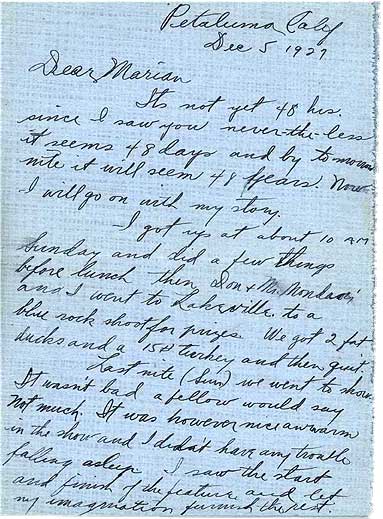 Petaluma, Calif
Dec 5 1927
Dear Marian
Its not yet 48 hrs.
since I saw you never-the-less
it seems 48 days and by tomorrow
nite it will seem 48 years. Now
I will go on with my story.
I got up at about 10 AM
Sunday and did a few things
before lunch then Don & Mr. Mondavi
and I went to Lakeville to a
blue rock shoot for prizes. We got 2 fat
ducks and a 15# turkey and then quit.
Last nite (Sun) we went to show.
It wasn't bad a fellow would say
Not much. It was however nice a warm
in the show and I didn't have any trouble
falling asleep. I saw the start
and finish of the feature and let
my imagination furnish the rest.